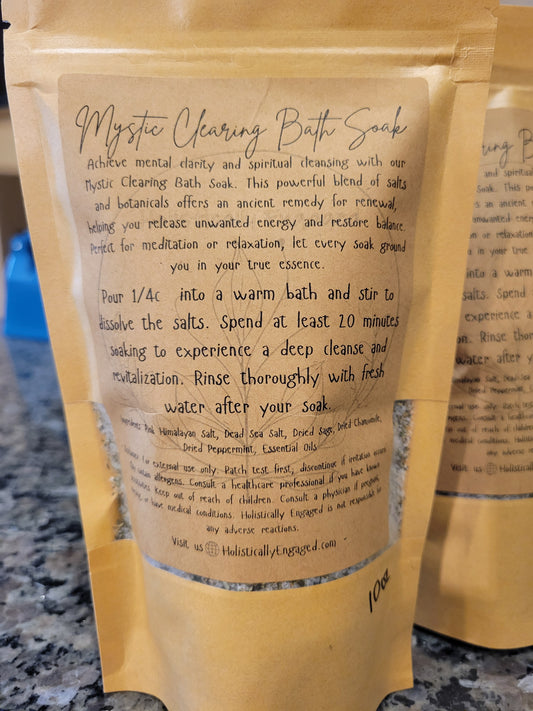 Mystic Clearing Bath Soak
Achieve mental clarity and spiritual cleansing with our
Mystic Clearing Bath Soak. This powerful blend of salts
and botanicals offers an ancient remedy for renewal,
helping you release unwanted energy and restore balance.
Perfect for meditation or relaxation, let every soak ground
you in your true essence.
Pour 1/4c into a warm bath and stir to
dissolve the salts. Spend at least 20 minutes
soaking to experience a deep cleanse and
revitalization. Rinse thoroughly with fresh
water after your soak.
Ingredients: Pink Himalayan Salt, Dead Sea Salt, Dried Sage, Dried Chamomile,
Dried Peppermint, Essential Oils
for external use only. Patch test first, discontinue if irritation occurs.
allergens. Consult a healthcare professional if you have known
Keep out of reach of children. Consult a physician if pregnant,
or have medical conditions. Holistically Engaged is not responsible for
any adverse reactions.
Visit us HolisticallyEngaged.com
10oz
spiritual
Soak. This
an ancient
unwanted
or relaxation
in your true
into a warm
salts. Spend
experience a
Rinse thor
water after y
Himalayan Salt, Dead Sea
Dried Peppermint,
use only.
Consult a
out of reach of
medical conditions.
any adverse
Visit us Holistically